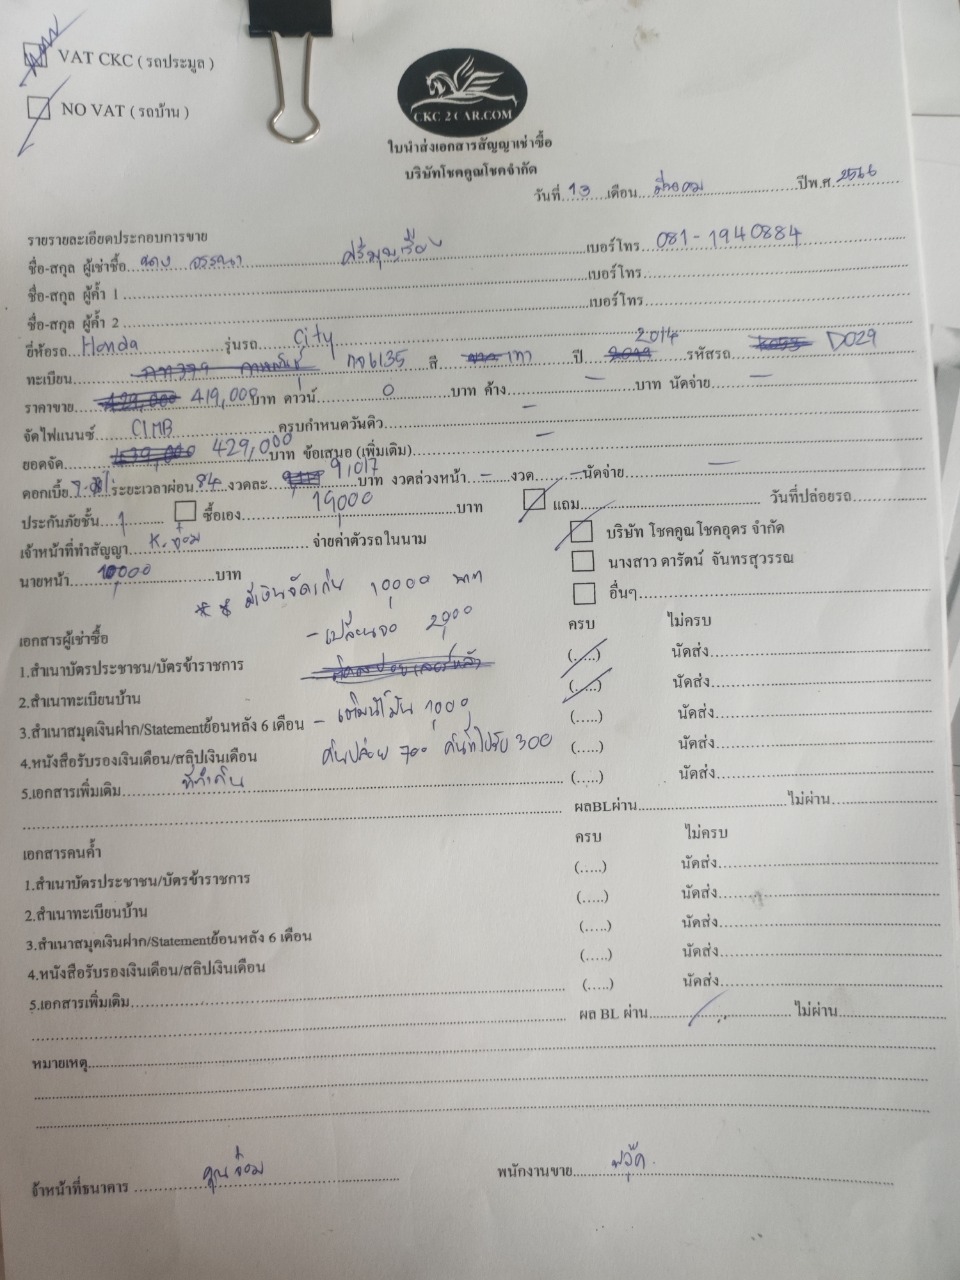 VAT CKC ( รถประมูล )
NO VAT ( รถบ้าน )
CKC 2 CAR.COM
ใบนำส่งเอกสารสัญญาเช่าซื้อ
บริษัทโชคคูณโชคจำกัด
วันที่ 13 เดือน มีนาคม ปีพ.ศ. 2566
รายรายละเอียดประกอบการขาย
ชื่อ-สกุล ผู้เช่าซื้อ เบอร์โทร 081-1940884
ชื่อ-สกุล ผู้ค้ำ 1 เบอร์โทร
ชื่อ-สกุล ผู้ค้ำ 2 เบอร์โทร
ยี่ห้อรถ Honda รุ่นรถ City
ทะเบียน กจ6135 สี เทา ปี 2014 รหัสรถ D029
ราคาขาย 419,000 บาท ดาวน์ 0 บาท ค้าง - บาท นัดจ่าย -
จัดไฟแนนซ์ CIMB ครบกำหนดวันดิว -
ยอดจัด 429,000 บาท ข้อเสนอ (เพิ่มเติม) -
ดอกเบี้ย ระยะเวลาผ่อน 84 งวดละ 9,017 บาท งวดล่วงหน้า - งวด - นัดจ่าย -
ประกันภัยชั้น 1 ซื้อเอง 19,000 บาท แถม วันที่ปล่อยรถ
เจ้าหน้าที่ทำสัญญา K.จ๋อม จ่ายค่าตัวรถในนาม บริษัท โชคคูณโชคอุดร จำกัด
นายหน้า 10,000 บาท นางสาว ดารัตน์ จันทรสุวรรณ
** มีเงินจัดเกิน 10,000 บาท อื่นๆ
เอกสารผู้เช่าซื้อ - เปลี่ยนจอ 2,000 ครบ ไม่ครบ
1.สำเนาบัตรประชาชน/บัตรข้าราชการ (.....) นัดส่ง
2.สำเนาทะเบียนบ้าน (.....) นัดส่ง
3.สำเนาสมุดเงินฝาก/Statementย้อนหลัง 6 เดือน - เติมน้ำมัน 1,000 (.....) นัดส่ง
4.หนังสือรับรองเงินเดือน/สลิปเงินเดือน คันปล่อย 700 คันที่ไปรับ 300 (.....) นัดส่ง
5.เอกสารเพิ่มเติม (.....) นัดส่ง
ผลBLผ่าน ไม่ผ่าน
เอกสารคนค้ำ ครบ ไม่ครบ
1.สำเนาบัตรประชาชน/บัตรข้าราชการ (.....) นัดส่ง
2.สำเนาทะเบียนบ้าน (.....) นัดส่ง
3.สำเนาสมุดเงินฝาก/Statementย้อนหลัง 6 เดือน (.....) นัดส่ง
4.หนังสือรับรองเงินเดือน/สลิปเงินเดือน (.....) นัดส่ง
5.เอกสารเพิ่มเติม (.....) นัดส่ง
ผล BL ผ่าน ไม่ผ่าน
หมายเหตุ
จ้าหน้าที่ธนาคาร คุณจ๋อม พนักงานขาย